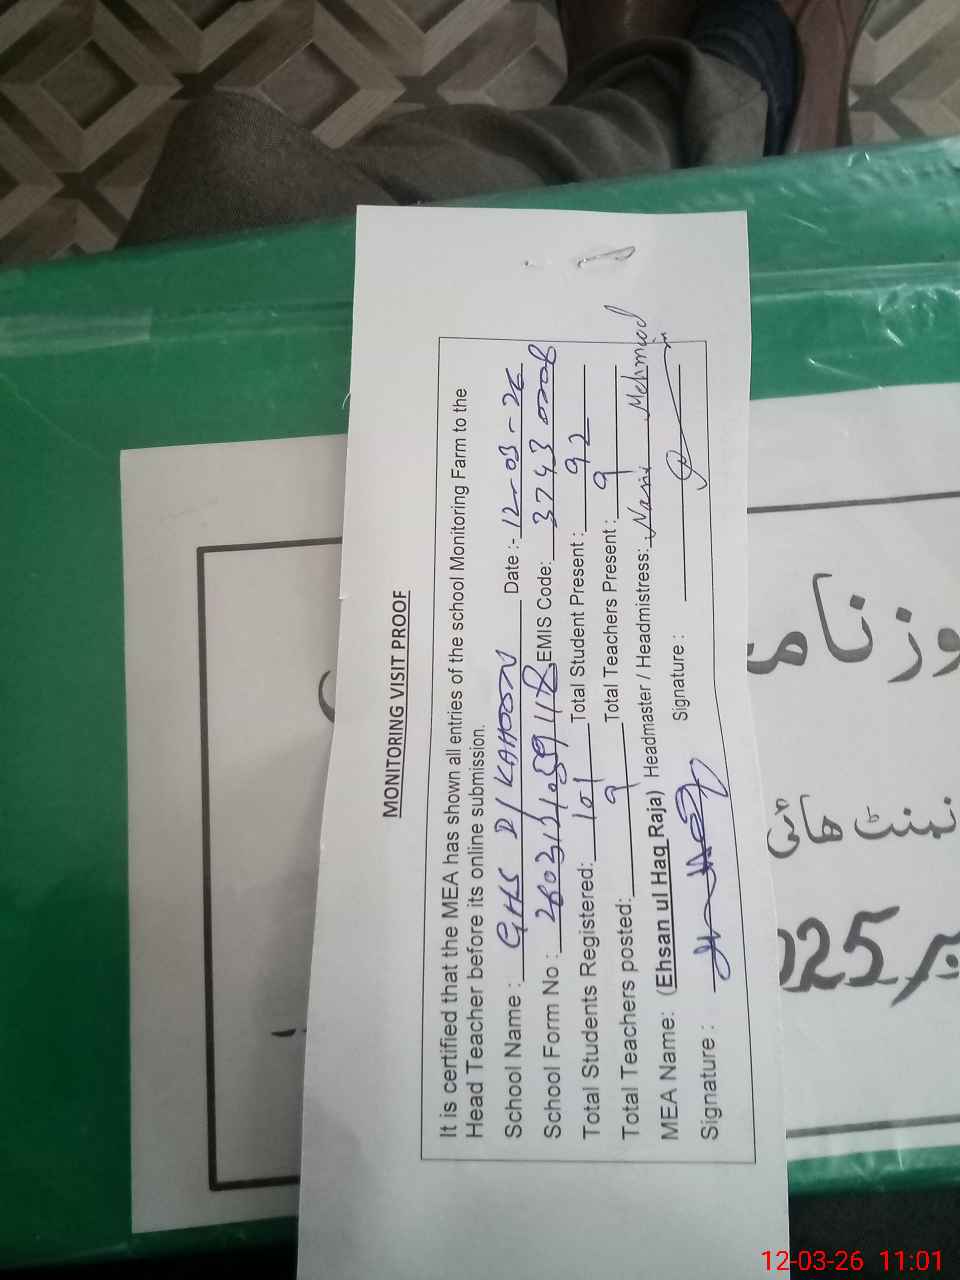 MONITORING VISIT PROOF
It is certified that the MEA has shown all entries of the school Monitoring Farm to the
Head Teacher before its online submission.
School Name : GHS D/ KAHOON Date :- 12-03-26
School Form No : EMIS Code: 3743 0008
Total Students Registered: 101 Total Student Present : 92
Total Teachers posted: 9 Total Teachers Present : 9
MEA Name: (Ehsan ul Haq Raja) Headmaster / Headmistress: Nasir Mehmood
Signature : Signature :
وزنامہ
نمنٹ ھائی
2025 بر
12-03-26 11:01